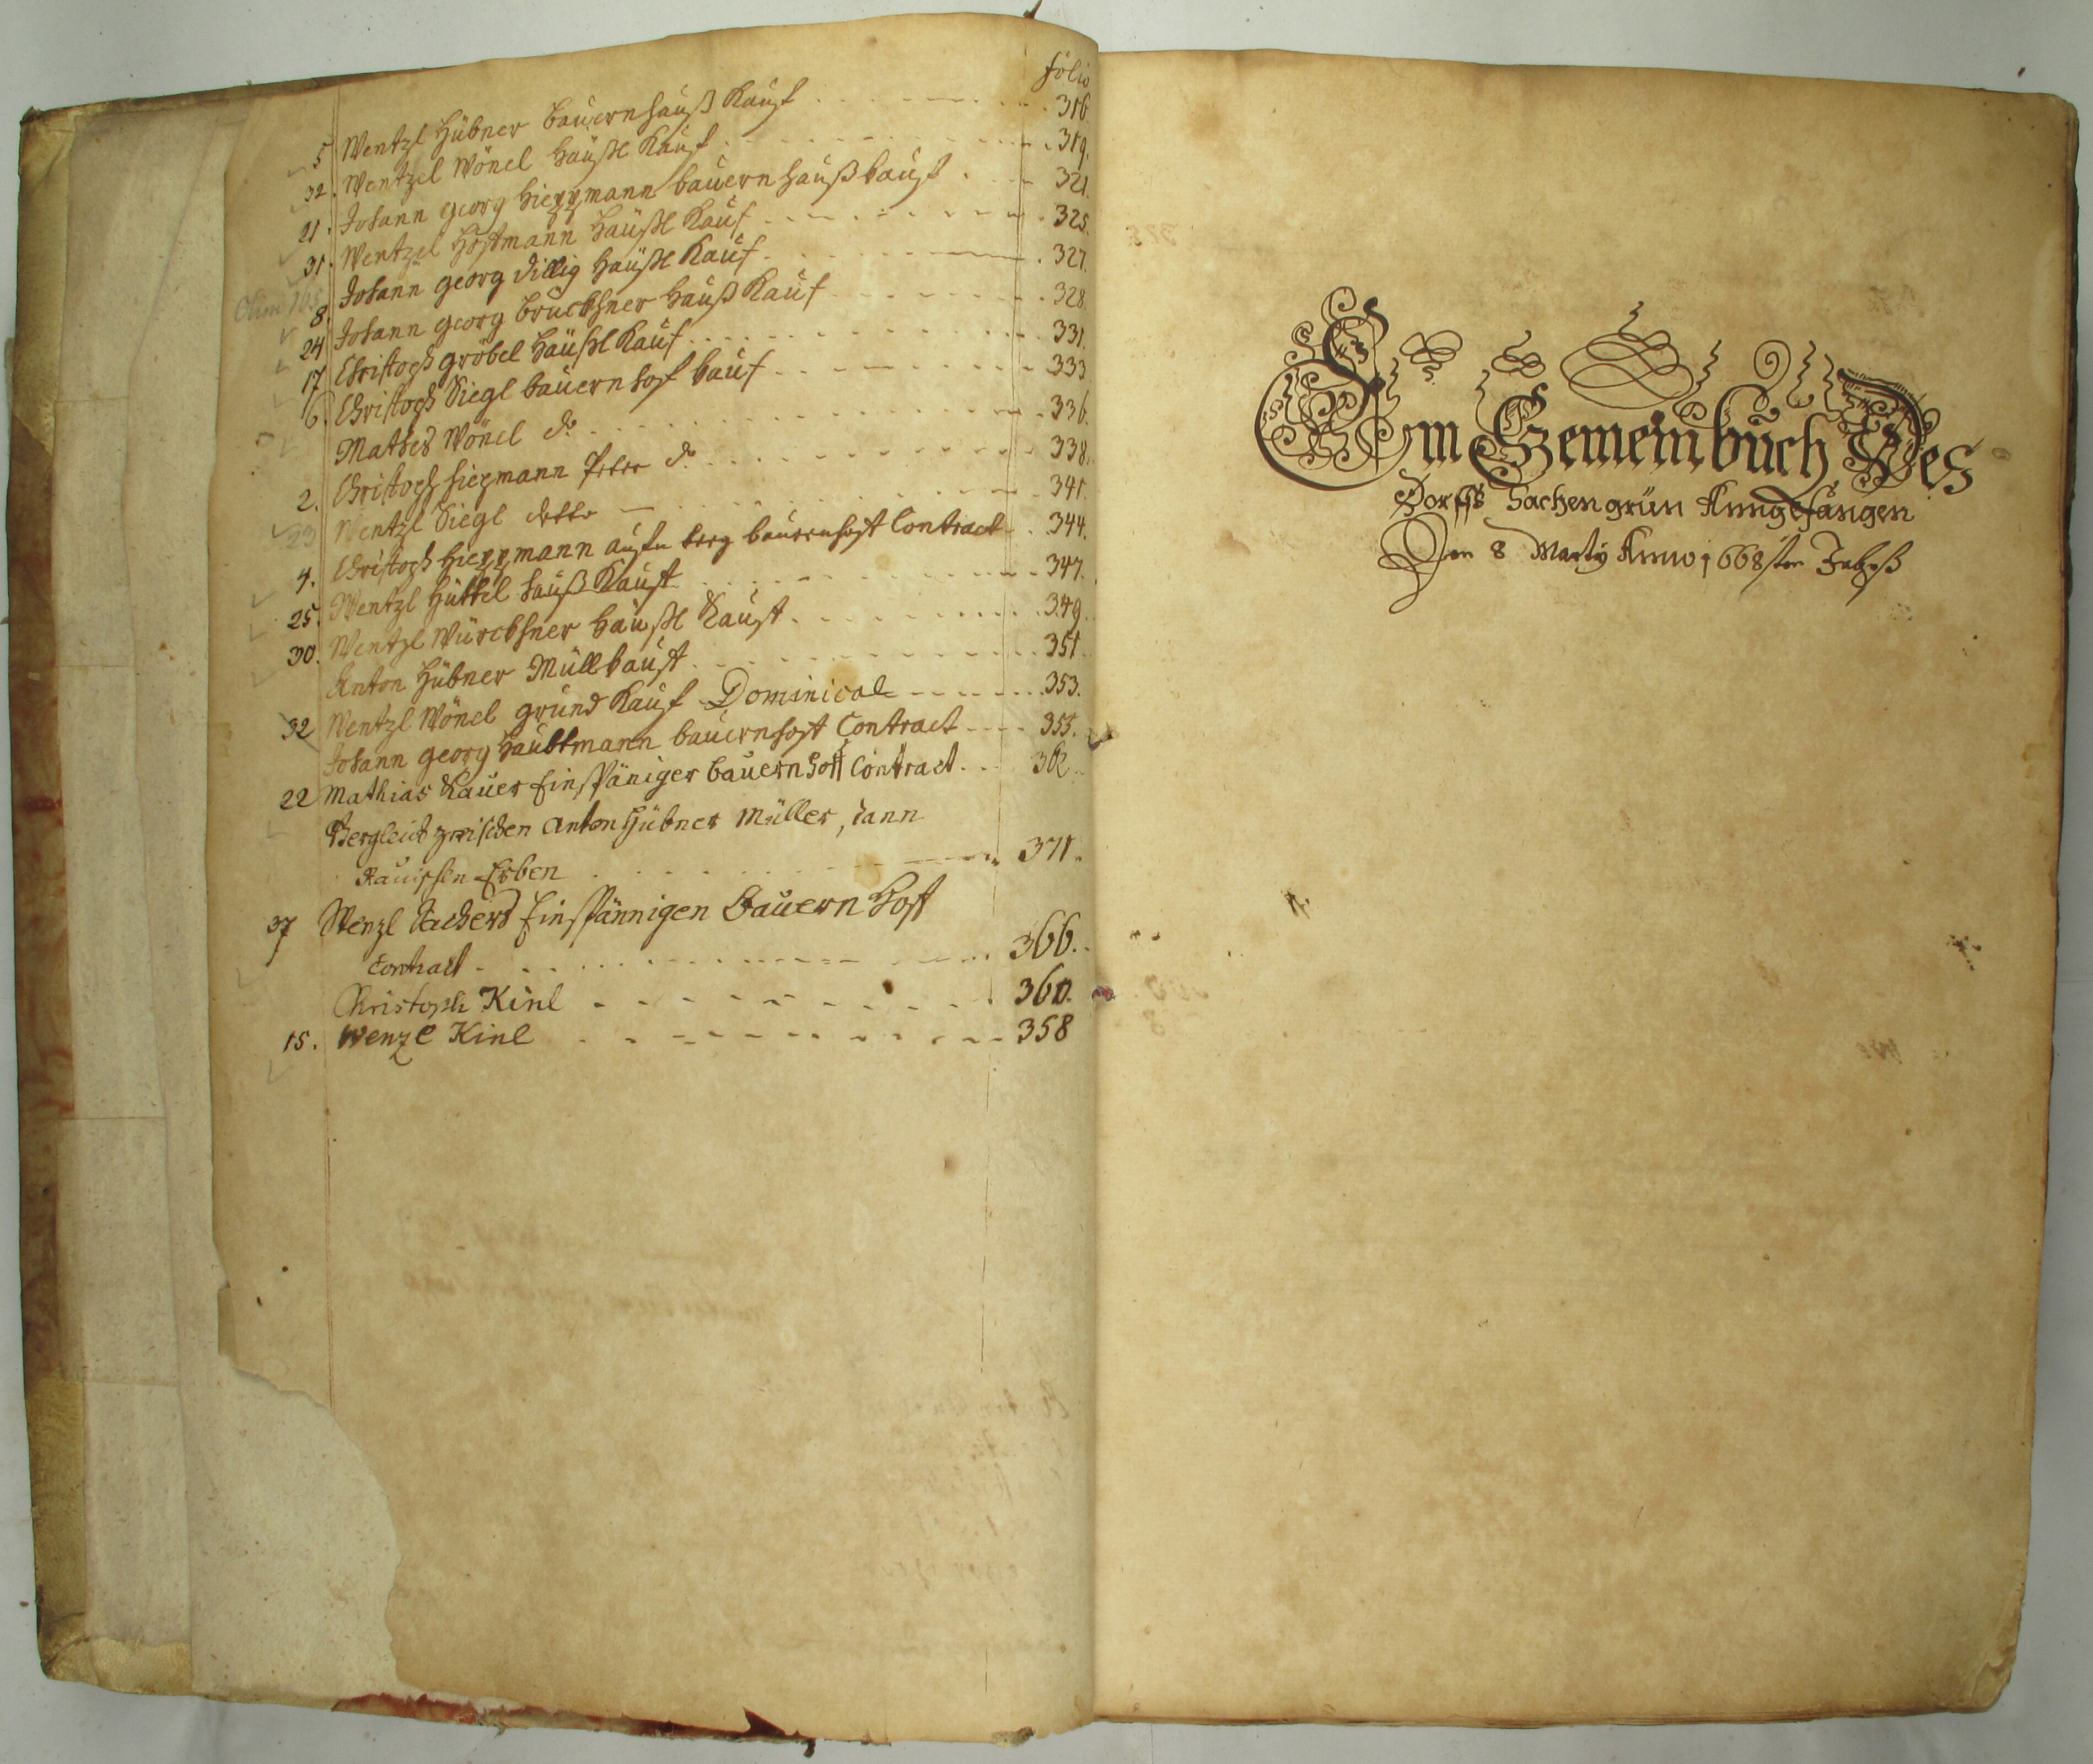 folio
5 Wentzl Hübner bauernhauß Kauf 316
32. Wentzel Wönel Häußl Kauf 319.
21. Johann georg Hieppmann bauern hauß kauf 321.
31. Wentzel Hostmann Häußl Kauf 325.
Johann georg Dillig Häußl Kauf 327.
8. Johann georg Bruckhner Hauß Kauf 328.
24 Christoph gröbel Häußl Kauf 331.
17 Christoph Siegl bauern hoff kauf 333
6. Mathes Wönel do 336.
Christoph hiepmann Peter do 338.
2. Wentzl Siegl detto 341.
23 Christoph Hieppmann aufn berg bauernhoff Contract 344.
4. Wentzl Hüttel hauß Kauft 347.
25. Wentzl Würckhner Häußl Kauft 349.
30. Anton Hübner Müllkauft 351.
Wentzl Wönel grund Kauf Dominical 353.
32 Johann georg Haubtmann bauernhoft Contract 355.
22 Mathias Kauer Einspäniger bauern hoff Contract 362.
Vergleich zwischen Anton Hübner Müller, dann
Erben 371.
37 Wenzl Einspännigen Bauern Hoff
Contract 366.
Christoph Kinl 360.
15. Wenzl Kinl 358
Ein Gemeinbuch Des
Dorffs Sachengrün Anngefangen
Den 8 Marty Anno 1668sten Jahrß